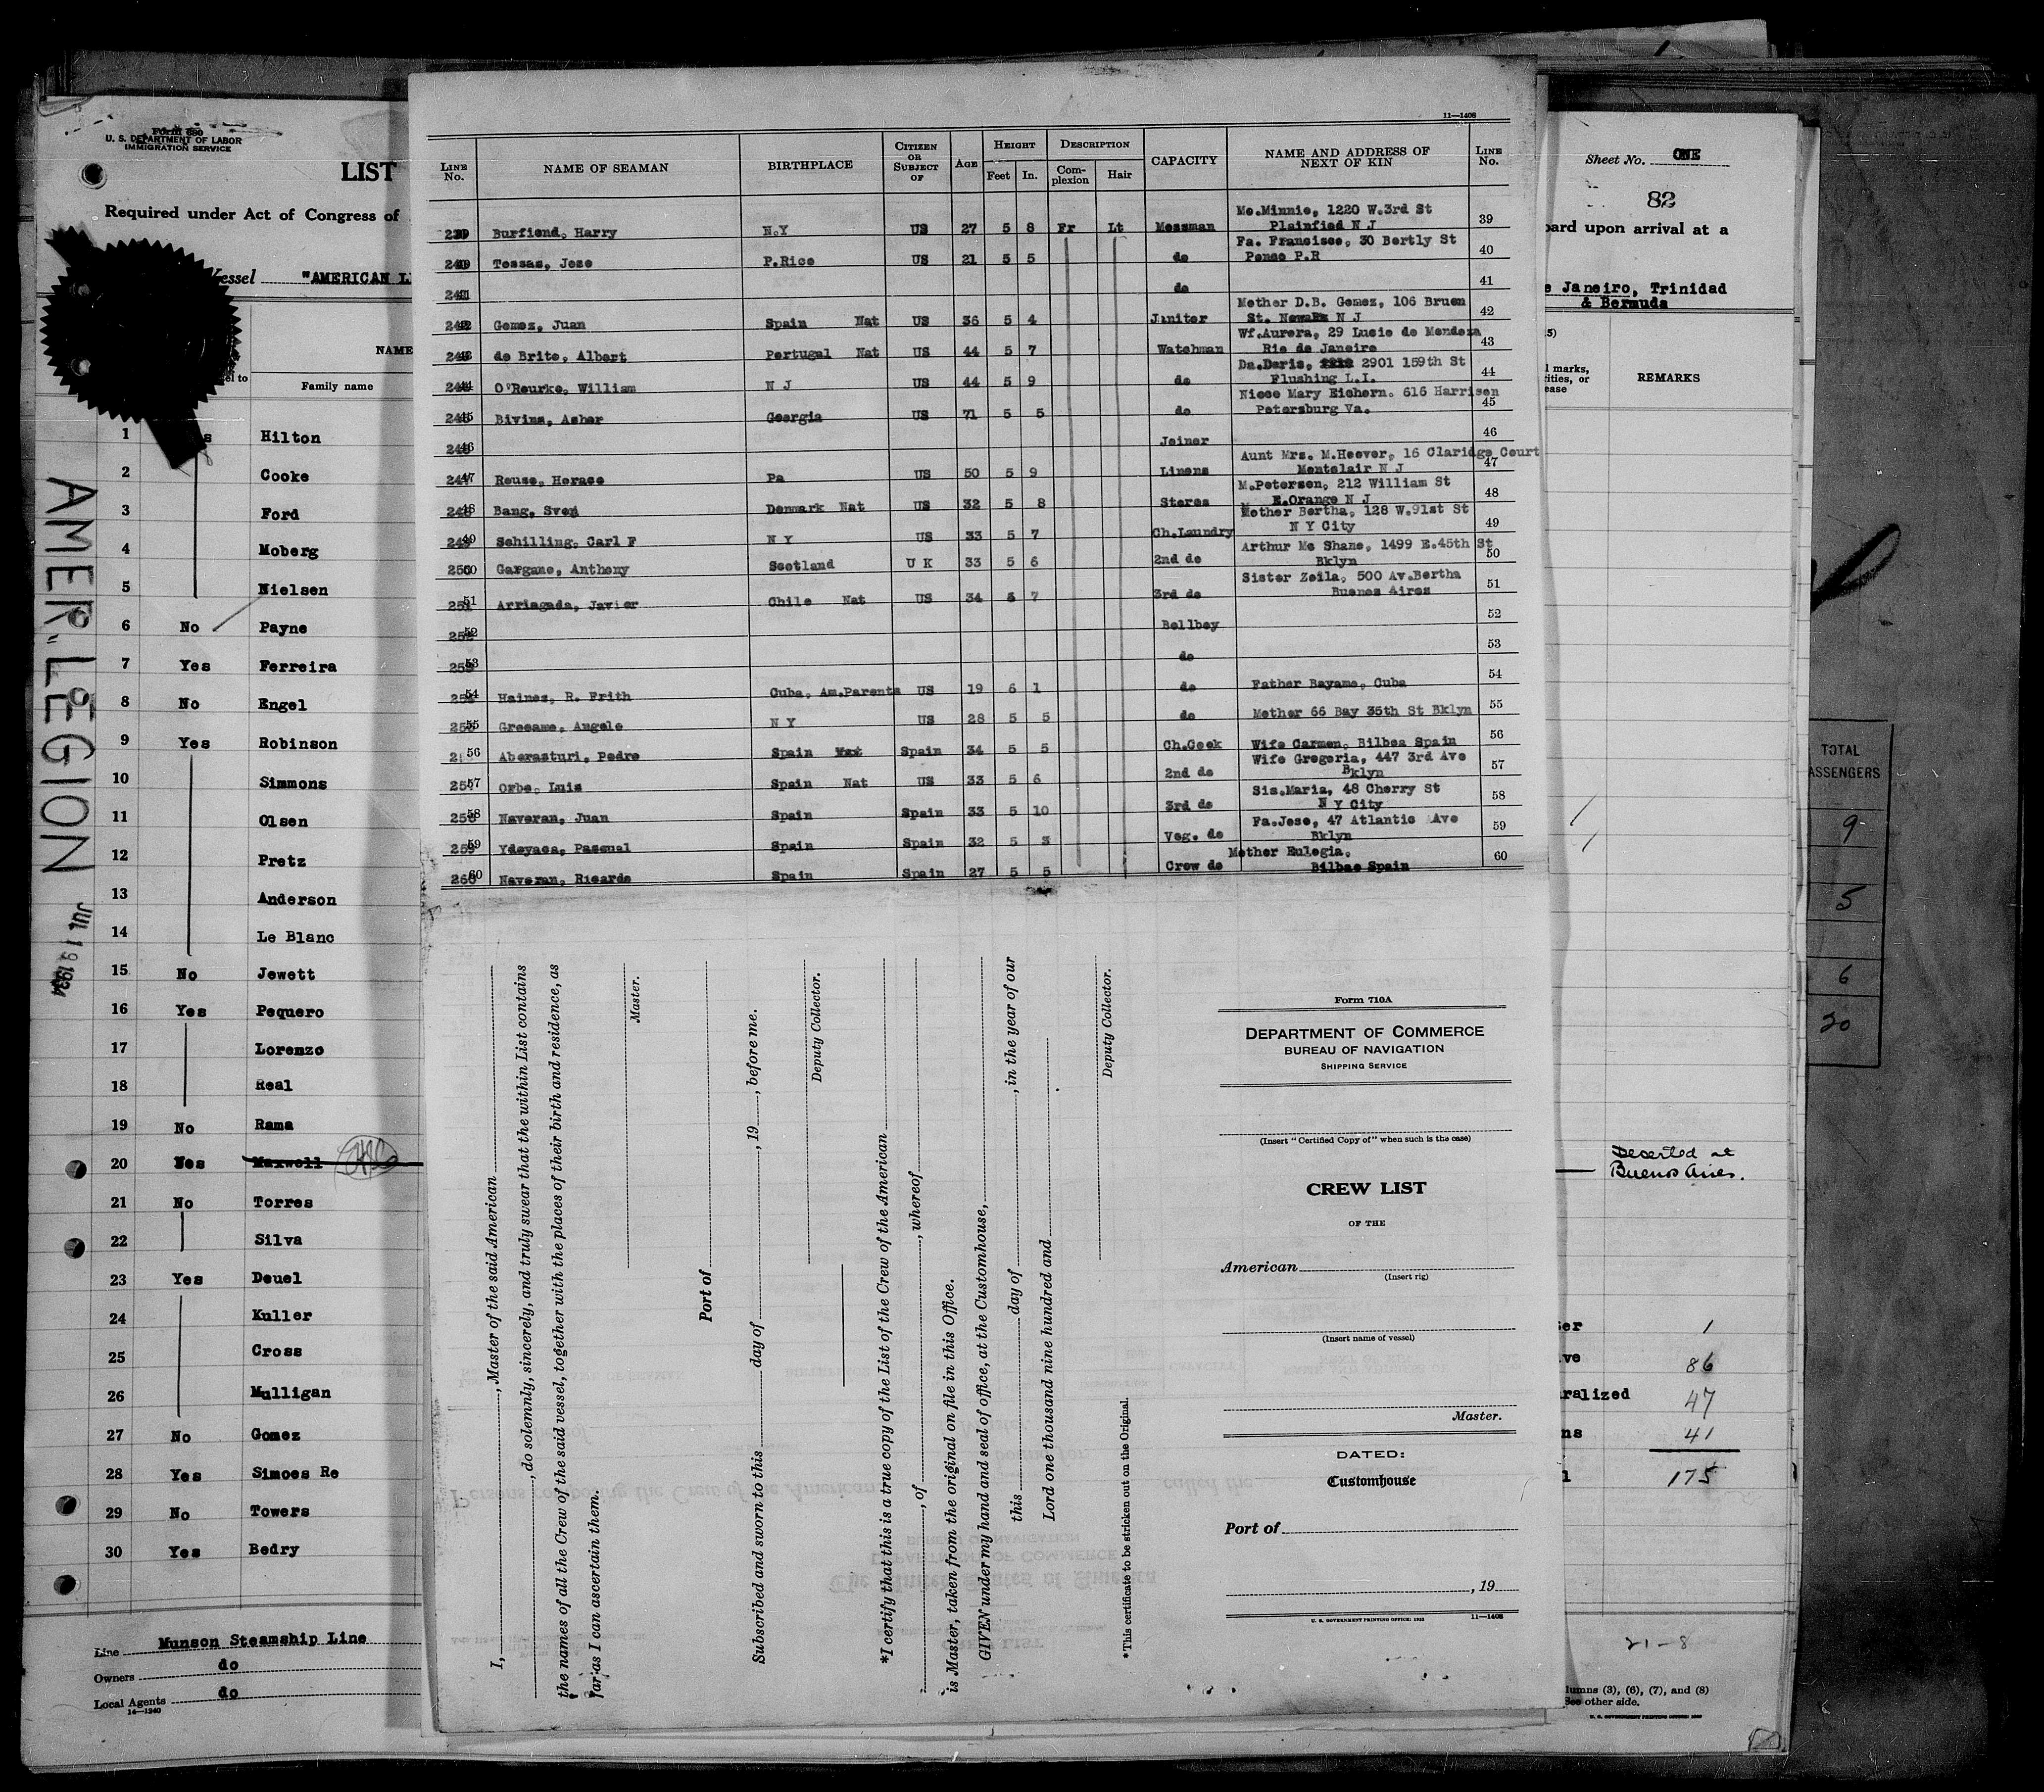 Form 680
U. S. DEPARTMENT OF LABOR
IMMIGRATION SERVICE
LIST
Required under Act of Congress of
Vessel "AMERICAN L
NAME
Family name
1 Hilton
2 Cooke
3 Ford
4 Moberg
5 Nielsen
6 No Payne
7 Yes Ferreira
8 No Engel
9 Yes Robinson
10 Simmons
11 Olsen
12 Pretz
13 Anderson
14 Le Blanc
15 No Jewett
16 Yes Pequero
17 Lorenzo
18 Real
19 No Rama
20 Yes Maxwell
21 No Torres
22 Silva
23 Yes Deuel
24 Kuller
25 Cross
26 Mulligan
27 No Gomez
28 Yes Simoes Re
29 No Towers
30 Yes Bedry
Line Munson Steamship Line
Owners do
Local Agents do
14—1240
AMER. LEGION
JUL 19 1934
11—1408
LINE No. NAME OF SEAMAN BIRTHPLACE CITIZEN OR SUBJECT OF AGE HEIGHT Feet In. DESCRIPTION Complexion Hair CAPACITY NAME AND ADDRESS OF NEXT OF KIN LINE No.
Mo.Minnie, 1220 W.3rd St
239 Burfiend, Harry N.Y US 27 5 8 Fr Lt Messman Plainfied N J 39
Fa. Francisco, 30 Bertly St
240 Tossas, Joze P.Rico US 21 5 5 do Ponso P.R 40
241 do 41
Mother D.B. Gomez, 106 Bruen
242 Gomez, Juan Spain Nat US 36 5 4 Janitor St. Newark N J 42
Wf.Aurora, 29 Lucio de Mendoza
243 de Brito, Albert Portugal Nat US 44 5 7 Watchman Rio de Janeiro 43
Da.Doris, 2901 159th St
244 O'Rourke, William N J US 44 5 9 do Flushing L.I. 44
Niece Mary Eichorn. 616 Harrison
245 Bivins, Asher Georgia US 71 5 5 do Petersburg Va. 45
246 Joiner 46
Aunt Mrs. M.Hoover, 16 Claridge Court
247 Rouse, Horace Pa US 50 5 9 Linens Montclair N J 47
M.Petersen, 212 William St
248 Bang, Sven Denmark Nat US 32 5 8 Stores E.Orange N J 48
Mother Bertha, 128 W.91st St
249 Schilling, Carl F N Y US 33 5 7 Ch.Laundry N Y City 49
Arthur Mc Shane, 1499 E.45th St
250 Gargano, Anthony Scotland U K 33 5 6 2nd do Bklyn 50
Sister Zoila, 500 Av.Bertha
251 Arriagada, Javier Chile Nat US 34 5 7 3rd do Buenos Aires 51
252 Bellboy 52
253 do 53
254 Haines, R. Frith Cuba, Am.Parents US 19 6 1 do Father Bayamo, Cuba 54
255 Gresamo, Angelo N Y US 28 5 5 do Mother 66 Bay 35th St Bklyn 55
56 Aberasturi, Pedro Spain Nat Spain 34 5 5 Ch.Cook Wife Carmen, Bilboa Spain 56
Wife Gregoria, 447 3rd Ave
257 Orbe, Luis Spain Nat US 33 5 6 2nd do Bklyn 57
Sis.Maria, 48 Cherry St
258 Naveran, Juan Spain Spain 33 5 10 3rd do N Y City 58
Fa.Jose, 47 Atlantic Ave
259 Ydoyaga, Pascual Spain Spain 32 5 3 Veg. do Bklyn 59
Mother Eulogia,
260 Naveran, Ricardo Spain Spain 27 5 5 Crew do Bilbao Spain 60
I, , Master of the said American
, do solemnly, sincerely, and truly swear that the within List contains
the names of all the Crew of the said vessel, together with the places of their birth and residence, as
far as I can ascertain them.
Master.
Port of
Subscribed and sworn to this day of , 19 , before me.
Deputy Collector.
*I certify that this is a true copy of the List of the Crew of the American
, of , whereof
is Master, taken from the original on file in this Office.
GIVEN under my hand and seal of office, at the Customhouse,
this day of , in the year of our
Lord one thousand nine hundred and .
Deputy Collector.
*This certificate to be stricken out on the Original.
Form 710A
DEPARTMENT OF COMMERCE
BUREAU OF NAVIGATION
SHIPPING SERVICE
(Insert "Certified Copy of" when such is the case)
CREW LIST
OF THE
American
(Insert rig)
(Insert name of vessel)
Master.
DATED:
Customhouse
Port of
, 19
U. S. GOVERNMENT PRINTING OFFICE: 1932 11—1408
Sheet No. ONE
82
oard upon arrival at a
e Janeiro, Trinidad
& Bermuda
REMARKS
Deserted at
Buenos Aires.
er 1
ve 86
ralized 47
ns 41
l 175
21-8
lumns (3), (6), (7), and (8)
See other side.
TOTAL
ASSENGERS
9
5
6
20